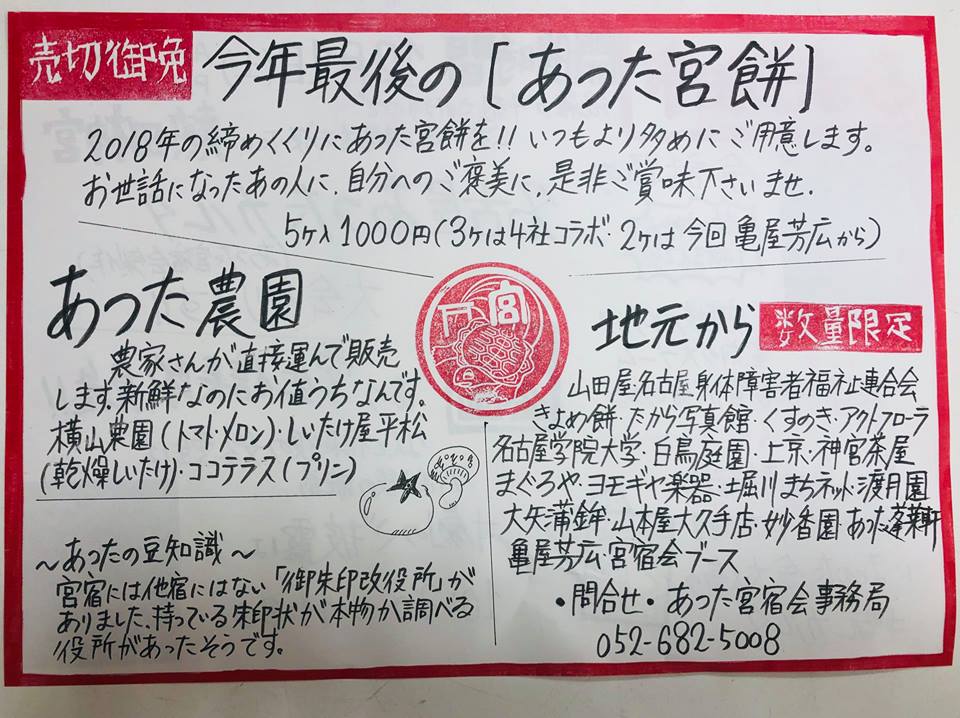 売切御免
今年最後の[あつた宮餅]
2018年の締めくくりにあつた宮餅を!!いつもより多めにご用意します。
お世話になったあの人に、自分へのご褒美に、是非ご賞味下さいませ.
5ヶ入1000円(3ヶは4社コラボ・2ヶは今回亀屋芳広から)
あつた農園
農家さんが直接運んで販売
します。新鮮なのにお値うちなんです。
横山農園(トマト・メロン)・しいたけ屋平松
(乾燥しいたけ)・ココテラス(プリン)
〜あつたの豆知識〜
宮宿には他宿にはない「御朱印改役所」が
ありました、持っている朱印状が本物か調べる
役所があったそうです。
宮
地元から
数量限定
山田屋・名古屋身体障害者福祉連合会
きよめ餅・たから写真館・くすのき・アクトフローラ
名古屋学院大学・白鳥庭園・上京・神宮茶屋
まぐろや・ヨモギヤ楽器・土堀川まちネット・渡月園
大矢蒲鉾・山本屋大久手店・妙香園・あつた蓬莱軒
亀屋芳広・宮宿会ブース
・問合せ・あつた宮宿会事務局
052-682-5008